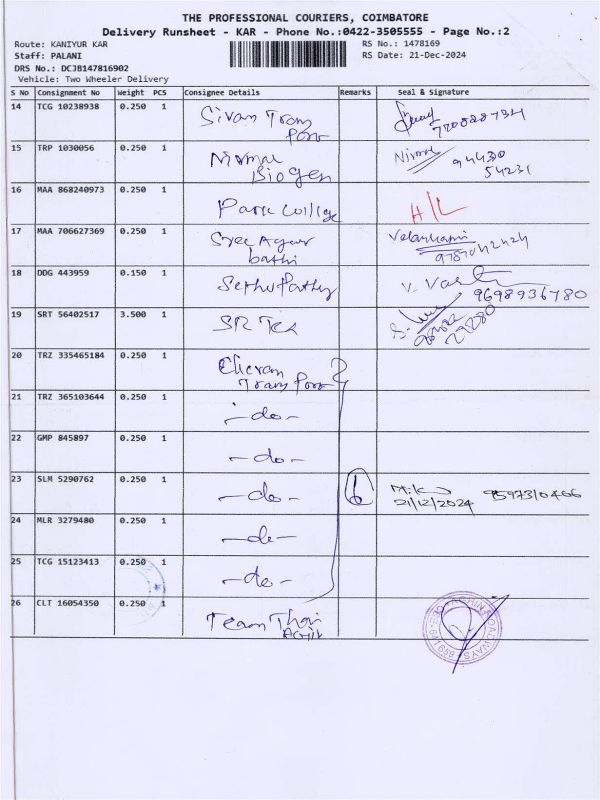 THE PROFESSIONAL COURIERS, COIMBATORE
Delivery Runsheet - KAR - Phone No.:0422-3505555 - Page No.:2
Route: KANIYUR KAR RS No.: 1478169
Staff: PALANI RS Date: 21-Dec-2024
DRS No.: DCJB147816902
Vehicle: Two Wheeler Delivery
S No Consignment No Weight PCS Consignee Details Remarks Seal & Signature
14 TCG 10238938 0.250 1 Sivam Trans
Port
15 TRP 1030056 0.250 1 Nirmal
BioGen 94430
54231
16 MAA 868240973 0.250 1 Park College H/L
17 MAA 706627369 0.250 1 Sree Agar
bathi 9787042424
18 DDG 443959 0.150 1 Sethu Pathy V.
9698936780
19 SRT 56402517 3.500 1 SR Tex
29280
20 TRZ 335465184 0.250 1 Cheran
Trans Port
21 TRZ 365103644 0.250 1 -do-
22 GMP 845897 0.250 1 -do-
23 SLM 5290762 0.250 1 -do- 6
21/12/2024 9597310466
24 MLR 3279480 0.250 1 -do-
25 TCG 15123413 0.250 1 -do-
26 CLT 16054350 0.250 1 Team Thai